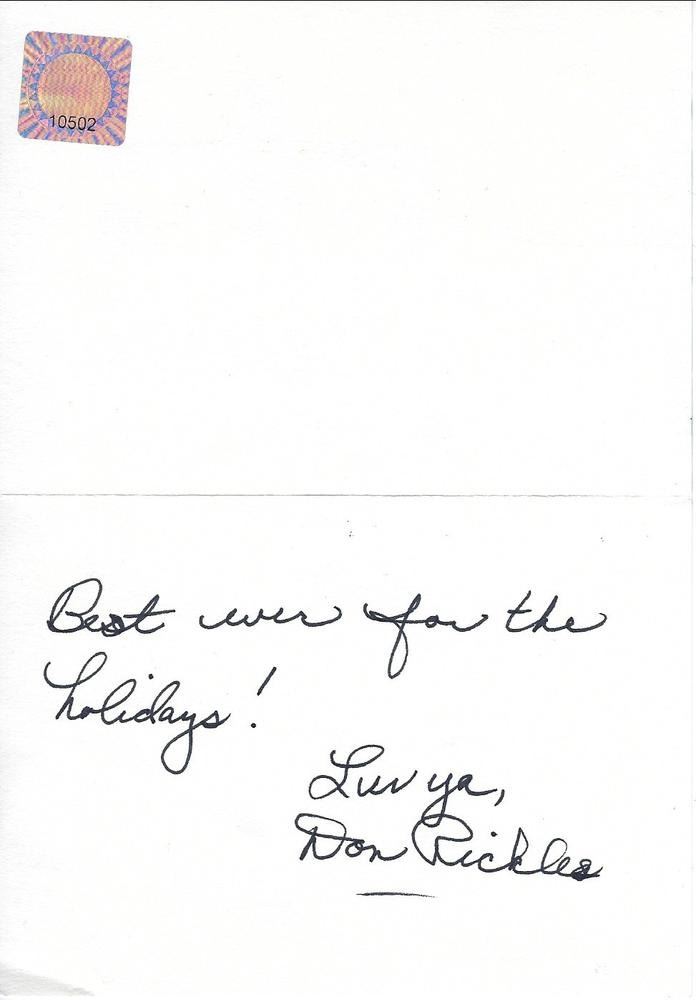 10502
Best ever for the
holidays!
Luv ya,
Don Rickles